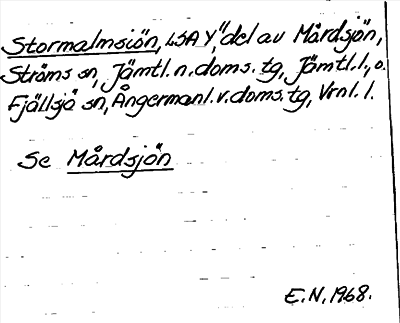 Stormalmsjön, LSA Y, "del av Mårdsjön,
Ströms sn, Jämtl. n. doms. tg, Jämtl. l., o.
Fjällsjö sn, Ångermanl. v. doms. tg, Vrnl. l.
Se Mårdsjön
E.N. 1968.